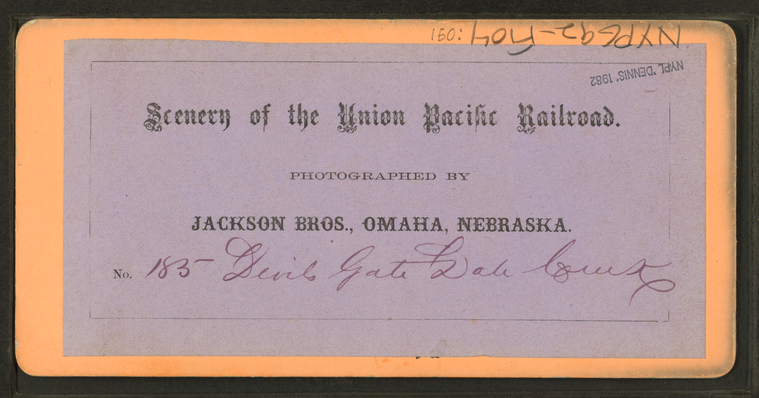 NYPG92-F04
150:
NYPL 'DENNIS' 1982
Scenery of the Union Pacific Railroad.
PHOTOGRAPHED BY
JACKSON BROS., OMAHA, NEBRASKA.
No. 185 Devils Gate Dale Creek